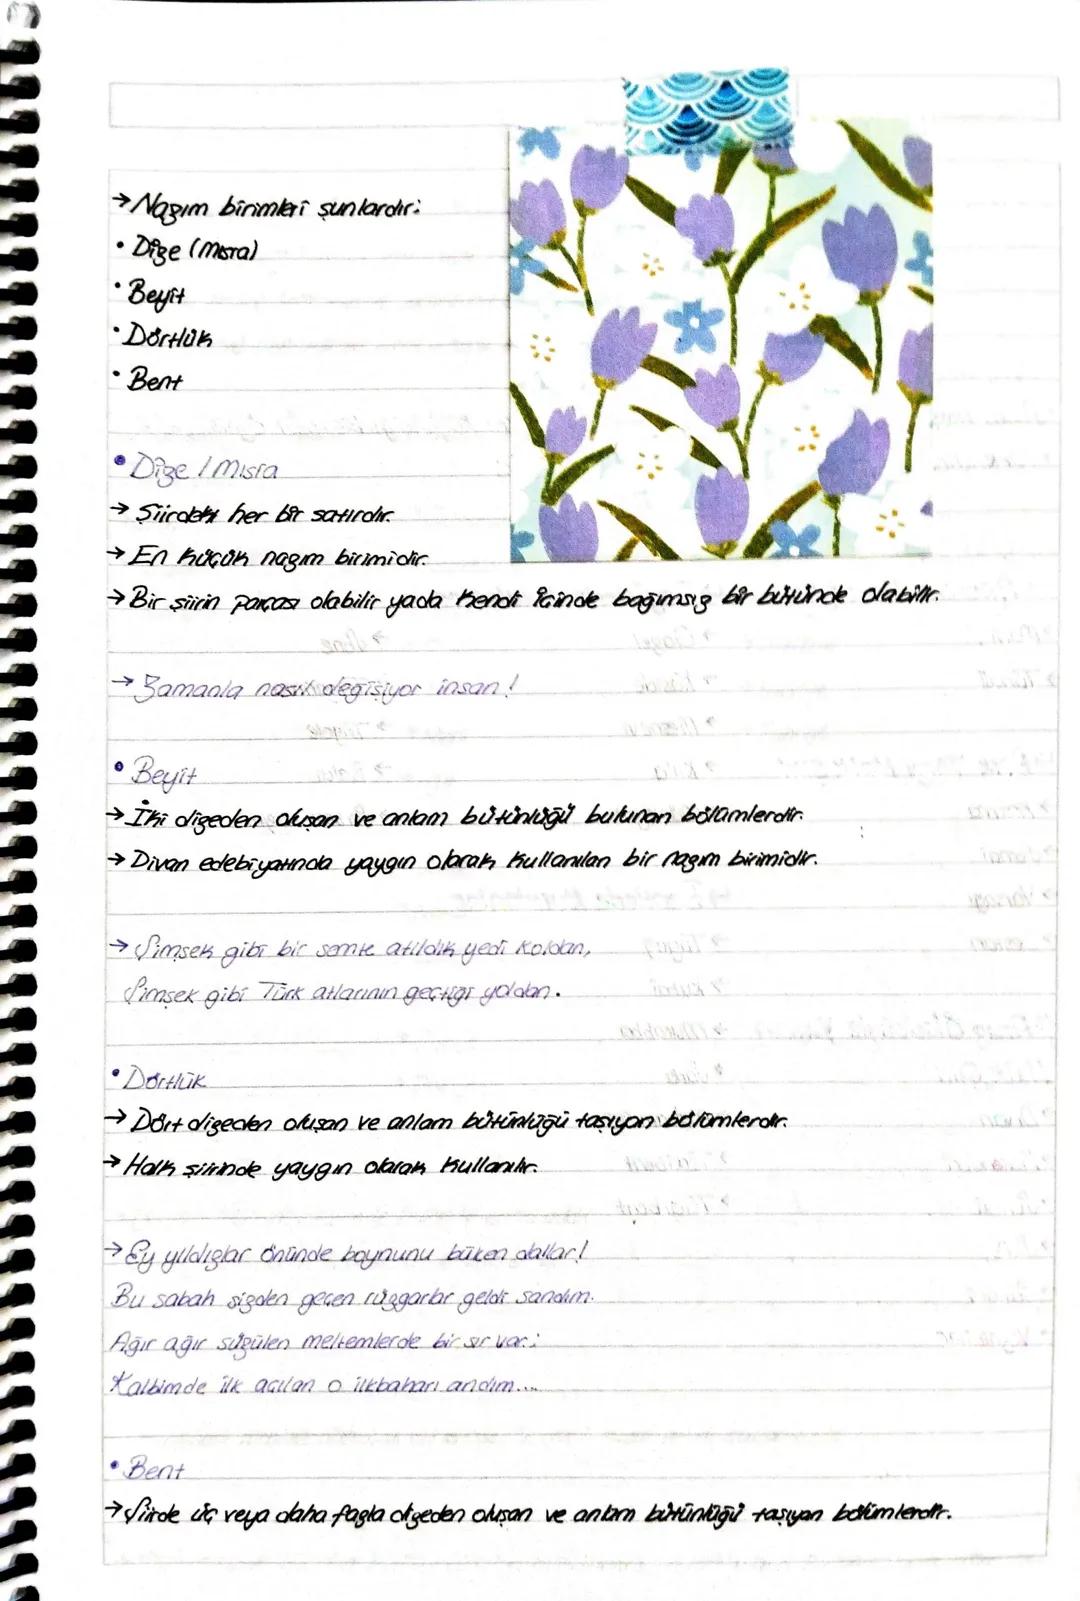 → Nazım birimleri şunlardır:
• Dize (Mısra)
• Beyit
• Dörtlük
• Bent
• Dize / Mısra
→ Şiirdeki her bir satırdır.
→ En küçük nazım birimidir.
→ Bir şiirin parçası olabilir yada kendi içinde bağımsız bir bütünde olabilir.
→ Zamanla nasıl değişiyor insan!
• Beyit
→ İki dizeden oluşan ve anlam bütünlüğü bulunan bölümlerdir.
→ Divan edebiyatında yaygın olarak kullanılan bir nazım birimidir.
→ Şimşek gibi bir semte atıldık yedi koldan,
Şimşek gibi Türk atlarının geçtiği yoldan.
• Dörtlük
→ Dört dizeden oluşan ve anlam bütünlüğü taşıyan bölümlerdir.
→ Halk şiirinde yaygın olarak kullanılır.
→ Ey yıldızlar önünde boynunu büken dallar!
Bu sabah sizden geçen rüzgarlar geldi sandım.
Ağır ağır süzülen meltemlerde bir sır var:
Kalbimde ilk açılan o ilkbaharı andım...
• Bent
→ Şiirde üç veya daha fazla dizeden oluşan ve anlam bütünlüğü taşıyan bölümlerdir.